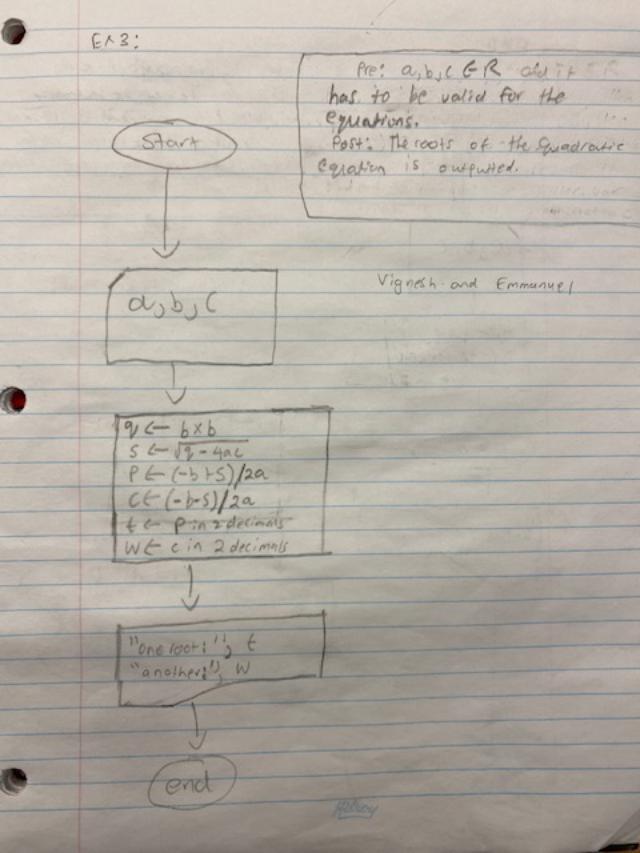 Ex3:
Pre: a,b,c ∈ R and it
has to be valid for the
equations.
Post: The roots of the Quadratic
Equation is outputted.
Start
Vignesh and Emmanuel
a, b, c
q ← b×b
s ← √q - 4ac
P ← (-b+s)/2a
C ← (-b-s)/2a
t ← p in 2 decimals
W ← c in 2 decimals
"one root:", t
"another:", W
end
Hilroy